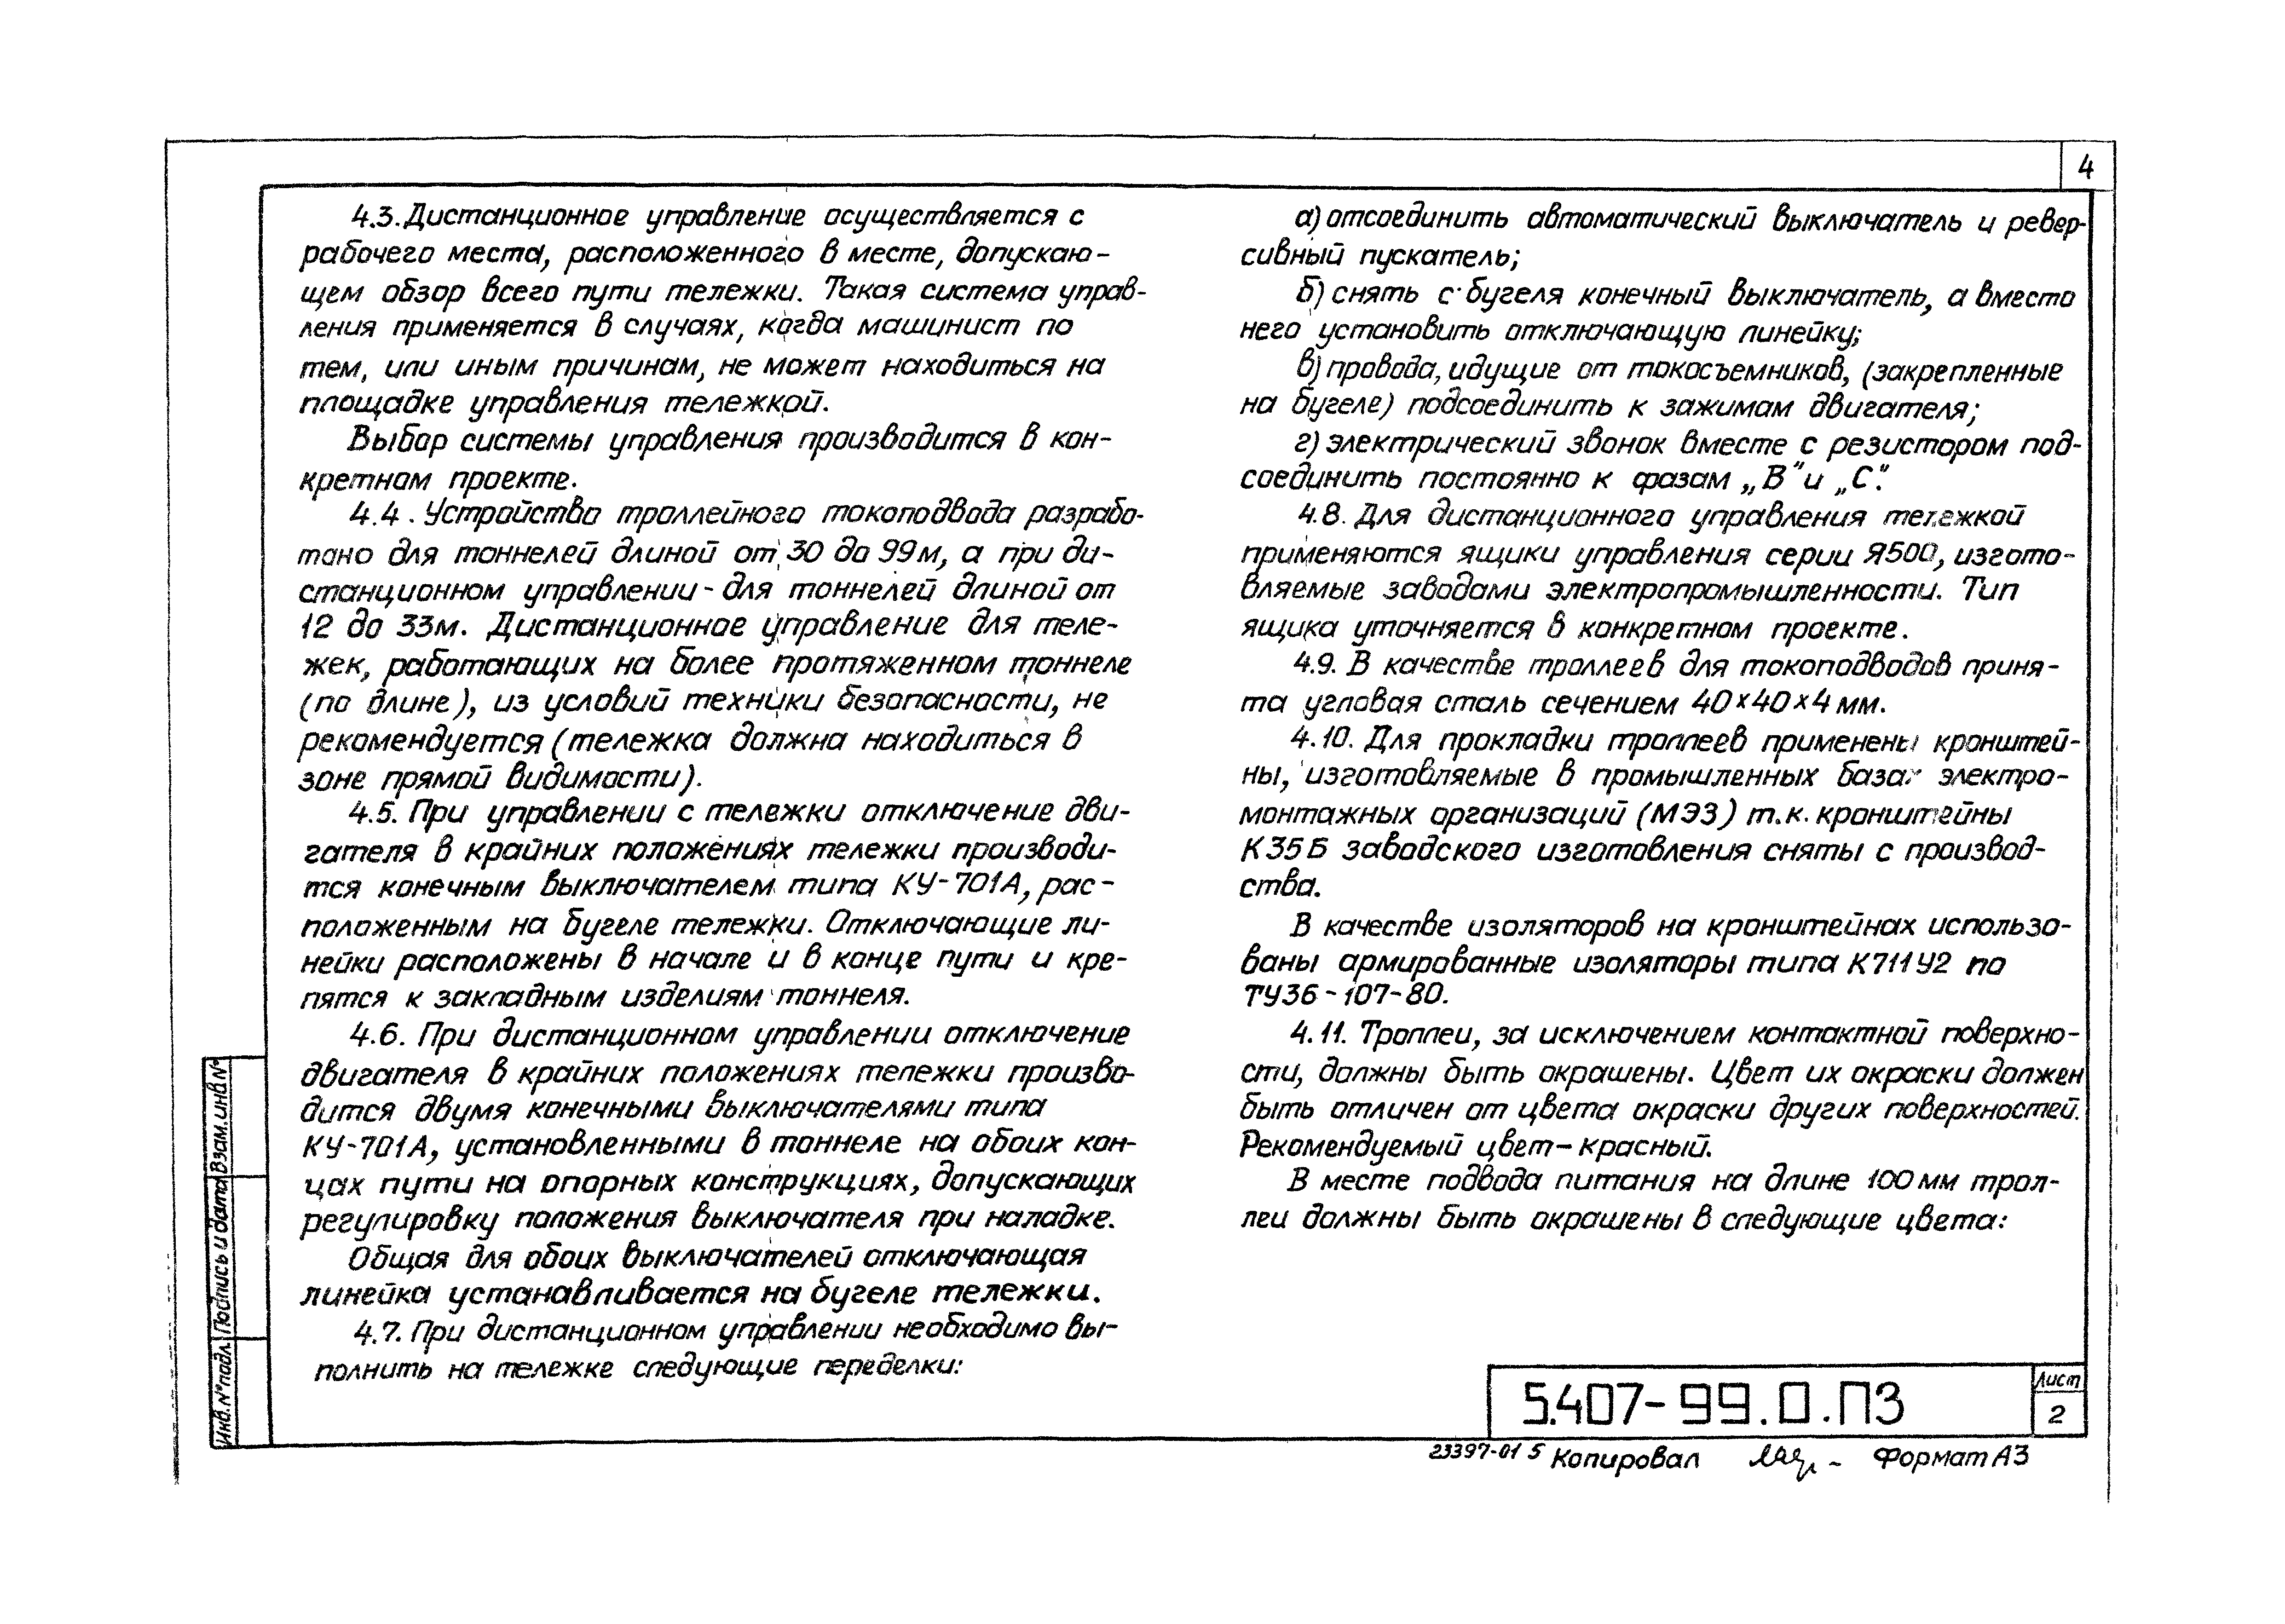 4
4.3. Дистанционное управление осуществляется с
рабочего места, расположенного в месте, допускаю-
щем обзор всего пути тележки. Такая система управ-
ления применяется в случаях, когда машинист по
тем, или иным причинам, не может находиться на
площадке управления тележкой.
Выбор системы управления производится в кон-
кретном проекте.
4.4. Устройство троллейного токоподвода разрабо-
тано для тоннелей длиной от 30 до 99м, а при ди-
станционном управлении - для тоннелей длиной от
12 до 33м. Дистанционное управление для теле-
жек, работающих на более протяженном тоннеле
(по длине), из условий техники безопасности, не
рекомендуется (тележка должна находиться в
зоне прямой видимости).
4.5. При управлении с тележки отключение дви-
гателя в крайних положениях тележки производи-
тся конечным выключателем типа КУ-701А, рас-
положенным на бугеле тележки. Отключающие ли-
нейки расположены в начале и в конце пути и кре-
пятся к закладным изделиям тоннеля.
4.6. При дистанционном управлении отключение
двигателя в крайних положениях тележки произво-
дится двумя конечными выключателями типа
КУ-701А, установленными в тоннеле на обоих кон-
цах пути на опорных конструкциях, допускающих
регулировку положения выключателя при наладке.
Общая для обоих выключателей отключающая
линейка устанавливается на бугеле тележки.
4.7. При дистанционном управлении необходимо вы-
полнить на тележке следующие переделки:
а) отсоединить автоматический выключатель и ревер-
сивный пускатель;
б) снять с бугеля конечный выключатель, а вместо
него установить отключающую линейку;
в) провода, идущие от токосъемников, (закрепленные
на бугеле) подсоединить к зажимам двигателя;
г) электрический звонок вместе с резистором под-
соединить постоянно к фазам „В" и „С".
4.8. Для дистанционного управления тележкой
применяются ящики управления серии Я500, изгото-
вляемые заводами электропромышленности. Тип
ящика уточняется в конкретном проекте.
4.9. В качестве троллеев для токоподводов приня-
та угловая сталь сечением 40×40×4 мм.
4.10. Для прокладки троллеев применены кронштей-
ны, изготовляемые в промышленных базах электро-
монтажных организаций (МЭЗ) т.к. кронштейны
К35Б заводского изготовления сняты с производ-
ства.
В качестве изоляторов на кронштейнах использо-
ваны армированные изоляторы типа К711У2 по
ТУ36-107-80.
4.11. Троллеи, за исключением контактной поверхно-
сти, должны быть окрашены. Цвет их окраски должен
быть отличен от цвета окраски других поверхностей.
Рекомендуемый цвет - красный.
В месте подвода питания на длине 100мм трол-
леи должны быть окрашены в следующие цвета:
Взам. инв №
Подпись и дата
Инв. № подл.
5.407-99.0.ПЗ
Лист
2
23397-01 5 Копировал Формат А3